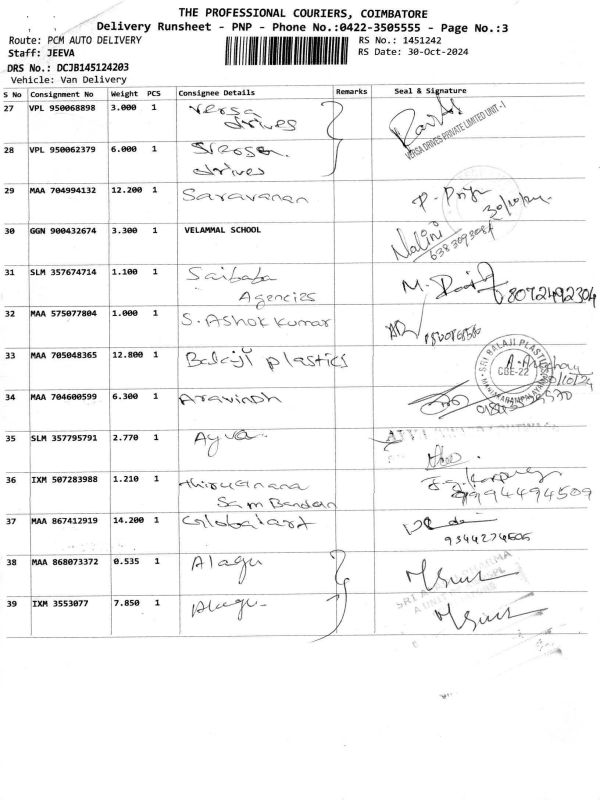 THE PROFESSIONAL COURIERS, COIMBATORE
Delivery Runsheet - PNP - Phone No.:0422-3505555 - Page No.:3
Route: PCM AUTO DELIVERY RS No.: 1451242
Staff: JEEVA RS Date: 30-Oct-2024
DRS No.: DCJB145124203
Vehicle: Van Delivery
S No Consignment No Weight PCS Consignee Details Remarks Seal & Signature
27 VPL 950068898 3.000 1 Versa
drives
VERSA DRIVES PRIVATE LIMITED UNIT -I
28 VPL 950062379 6.000 1 Versa
drives
29 MAA 704994132 12.200 1 Saravanan P. Priya
30/10/24
30 GGN 900432674 3.300 1 VELAMMAL SCHOOL Nalini
31 SLM 357674714 1.100 1 Saibaba M.
Agencies 8072492304
32 MAA 575077804 1.000 1 S. Ashok Kumar
33 MAA 705048365 12.800 1 Balaji plastics SRI BALAJI PLASTICS
CBE-22
30/10/24
34 MAA 704600599 6.300 1 Aravindh
35 SLM 357795791 2.770 1
36 IXM 507283988 1.210 1 thirugnana
Sam Bandan 9994494509
37 MAA 867412919 14.200 1 Globalart
9344274505
38 MAA 868073372 0.535 1 Alagu
39 IXM 3553077 7.850 1 Alagu